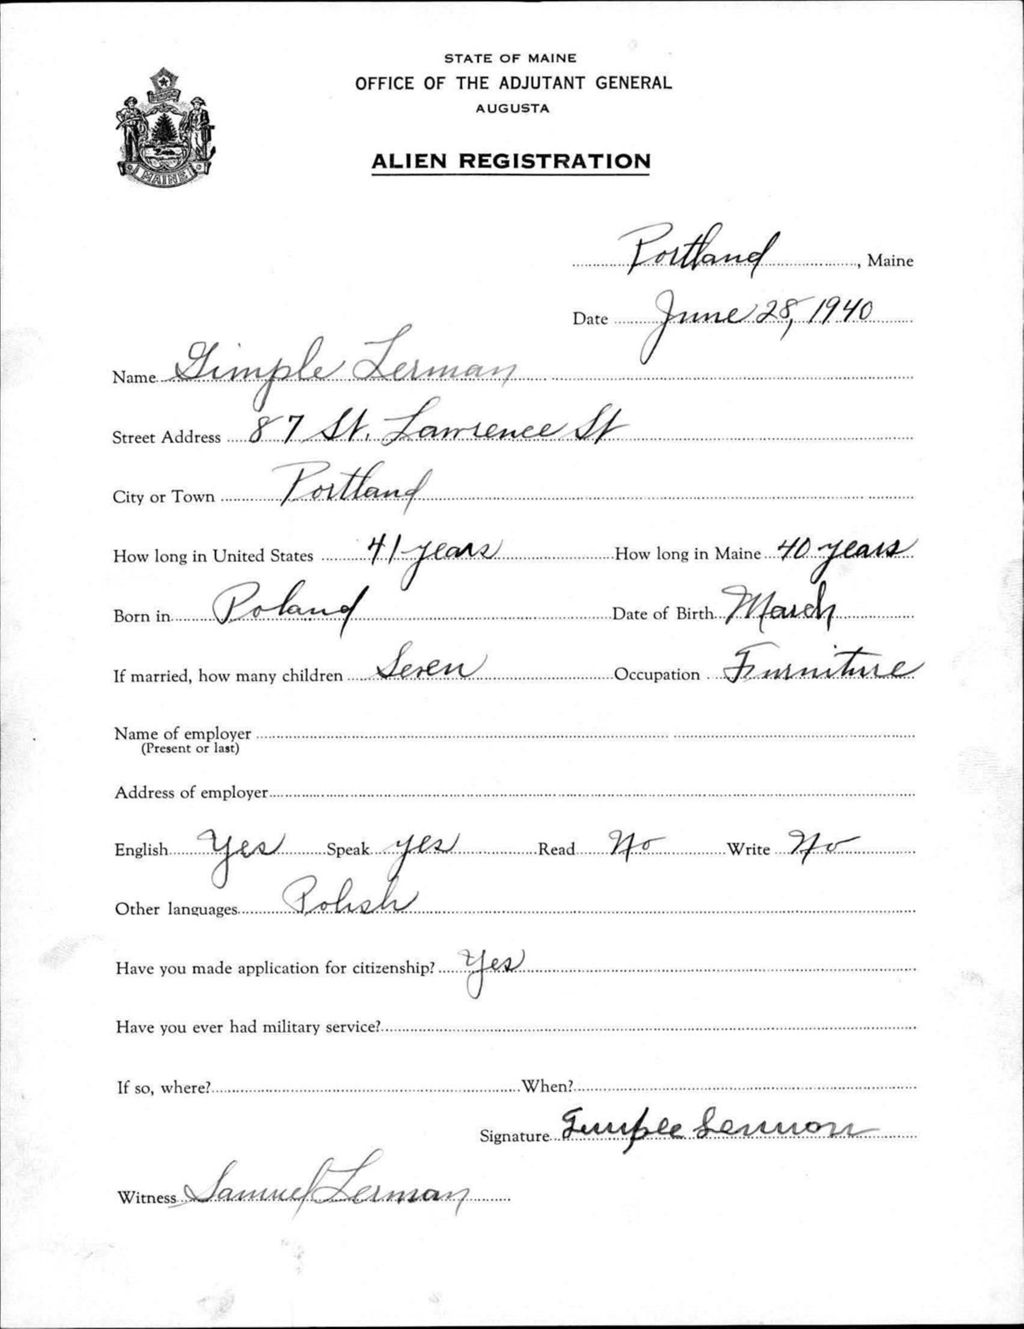 STATE OF MAINE
OFFICE OF THE ADJUTANT GENERAL
AUGUSTA
ALIEN REGISTRATION
MAINE
Portland, Maine
Date June 28, 1940
Name Gimple Lerman
Street Address 87 St. Lawrence St
City or Town Portland
How long in United States 41 years How long in Maine 40 years
Born in Poland Date of Birth March
If married, how many children Seven Occupation Furniture
Name of employer
(Present or last)
Address of employer
English Yes Speak yes Read No Write No
Other languages Polish
Have you made application for citizenship? Yes
Have you ever had military service?
If so, where? When?
Signature Gimple Lerman
Witness Samuel Lerman